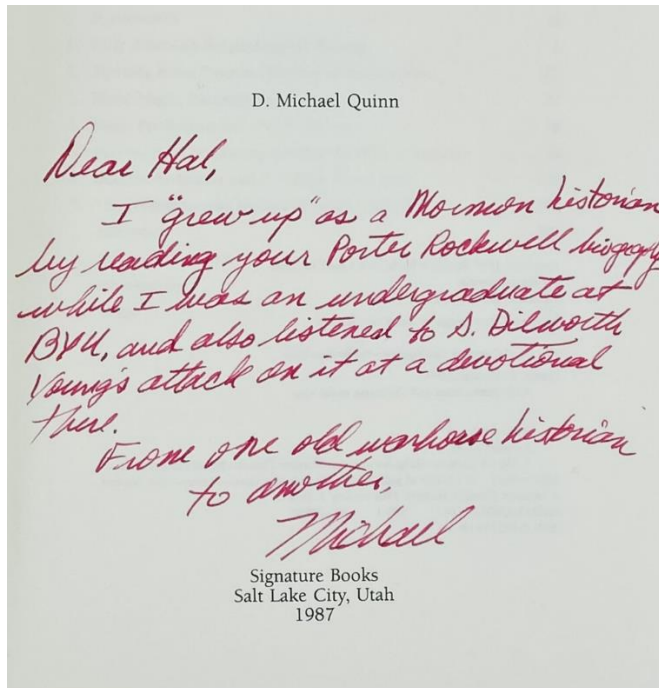 D. Michael Quinn
Dear Hal,
I "grew up" as a Mormon historian
by reading your Porter Rockwell biography
while I was an undergraduate at
BYU, and also listened to S. Dilworth
Young's attack on it at a devotional
there.
From one old warhorse historian
to another,
Michael
Signature Books
Salt Lake City, Utah
1987